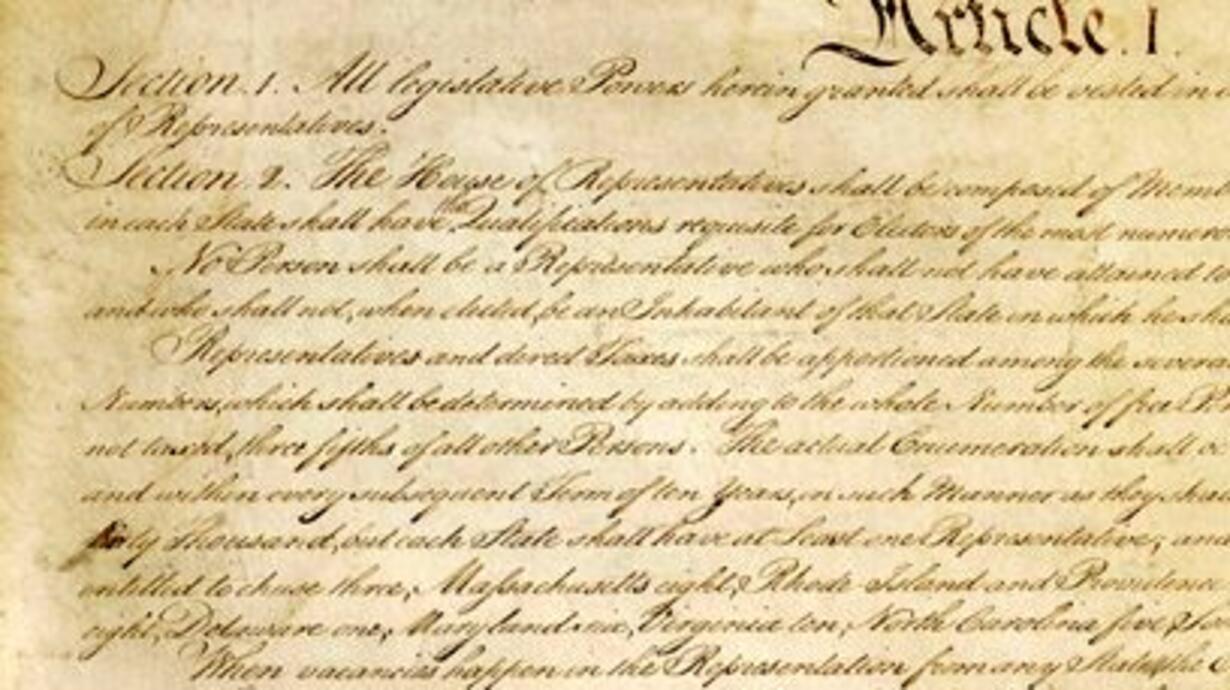 Article. I.
Section. 1. All legislative Powers herein granted shall be vested in a
of Representatives.
Section. 2. The House of Representatives shall be composed of Memb
in each State shall have the Qualifications requisite for Electors of the most numero
No Person shall be a Representative who shall not have attained to
and who shall not, when elected, be an Inhabitant of that State in which he sha
Representatives and direct Taxes shall be apportioned among the severa
Numbers, which shall be determined by adding to the whole Number of free P
not taxed, three fifths of all other Persons. The actual Enumeration shall be
and within every subsequent Term of ten Years, in such Manner as they sha
thirty Thousand, but each State shall have at Least one Representative; and
entitled to chuse three, Massachusetts eight, Rhode-Island and Providence
eight, Delaware one, Maryland six, Virginia ten, North Carolina five, So
When vacancies happen in the Representation from any State, the E